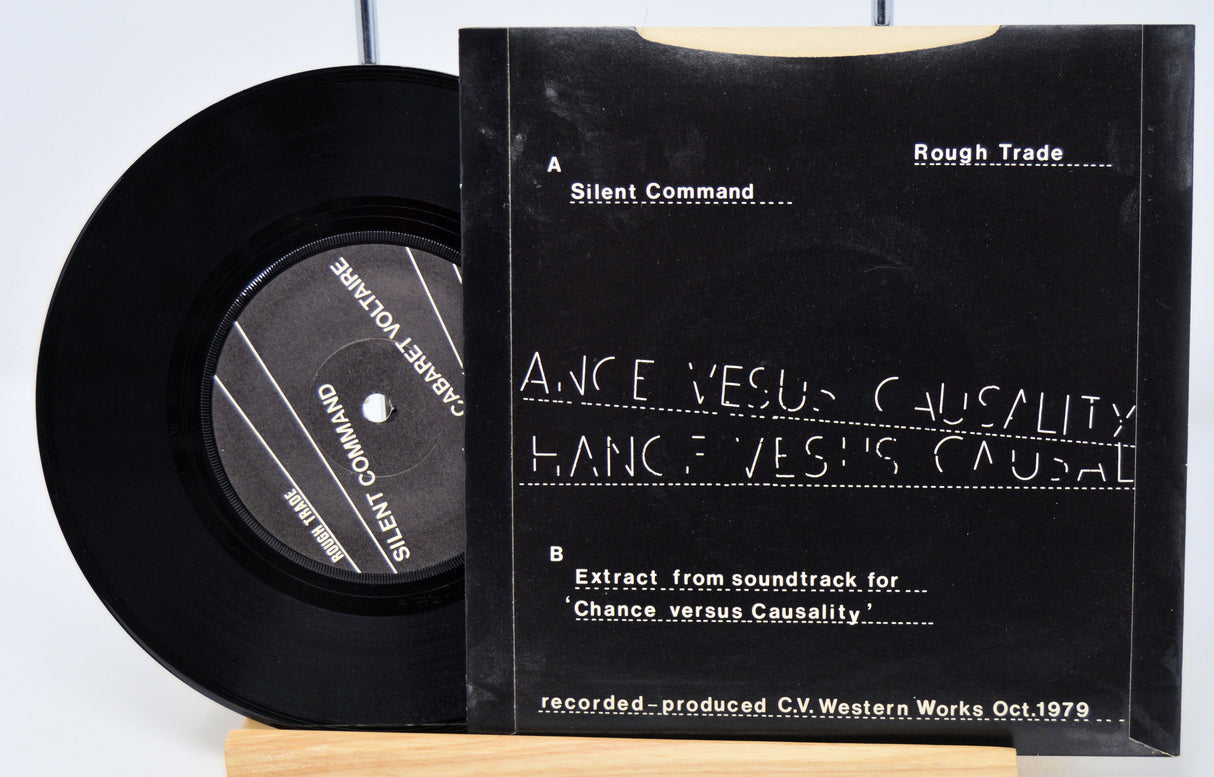 CABARET VOLTAIRE
SILENT COMMAND
ROUGH TRADE
A
Silent Command
Rough Trade
ANCE VESUS CAUSALITY
HANCE VESUS CAUSAL
B
Extract from soundtrack for
‘Chance versus Causality’
recorded–produced C.V. Western Works Oct.1979